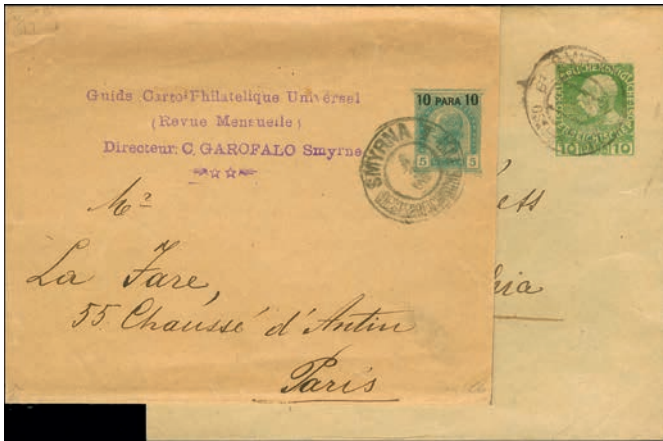 Guids Carto-Philatelique Universel
(Revue Mensuelle)
Directeur: C. GAROFALO Smyrne
10 PARA 10
5 5
SMYRNA
10 10
Mr
La Fare,
55 Chaussé d'Antin
Paris